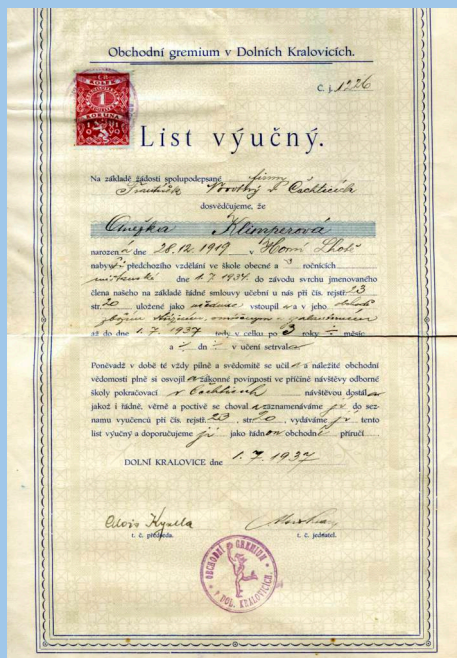 Obchodní gremium v Dolních Kralovicích.
Č. j. 1226
KOLEK
1
KORUNA
List výučný.
Na základě žádosti spolupodepsané firmy
František Novotný v Čechticích
dosvědčujeme, že
Anežka Klimperová
narozená dne 28.12.1919 v Horní Lhotě
nabyvší předchozího vzdělání ve škole obecné a 3 ročnících
měšťanské dne 1.7.1934 do závodu svrchu jmenovaného
člena našeho na základě řádné smlouvy učební u nás při čís. rejstř. 23
str. 20 uložené jako učednice vstoupila a v jeho obchodě
zbožím
až do dne 1.7.1937 tedy v celku po 3 roky ÷ měsíc
a ÷ dní v učení setrvala
Poněvadž v době té vždy pilně a svědomitě se učila a náležité obchodní
vědomosti plně si osvojila zákonné povinnosti ve příčině návštěvy odborné
školy pokračovací v Čechticích návštěvou dostála
jakož i řádně, věrně a poctivě se chovala zaznamenáváme ji do sez-
namu vyučenců při čís. rejstř. 23, str. 20, vydáváme jí tento
list výučný a doporučujeme ji jako řádnou obchodní příručí
DOLNÍ KRALOVICE dne 1.7.1937
Alois Kysella
t. č. předseda.
t. č. jednatel.
OBCHODNÍ GREMIUM
V DOL. KRALOVICÍCH.